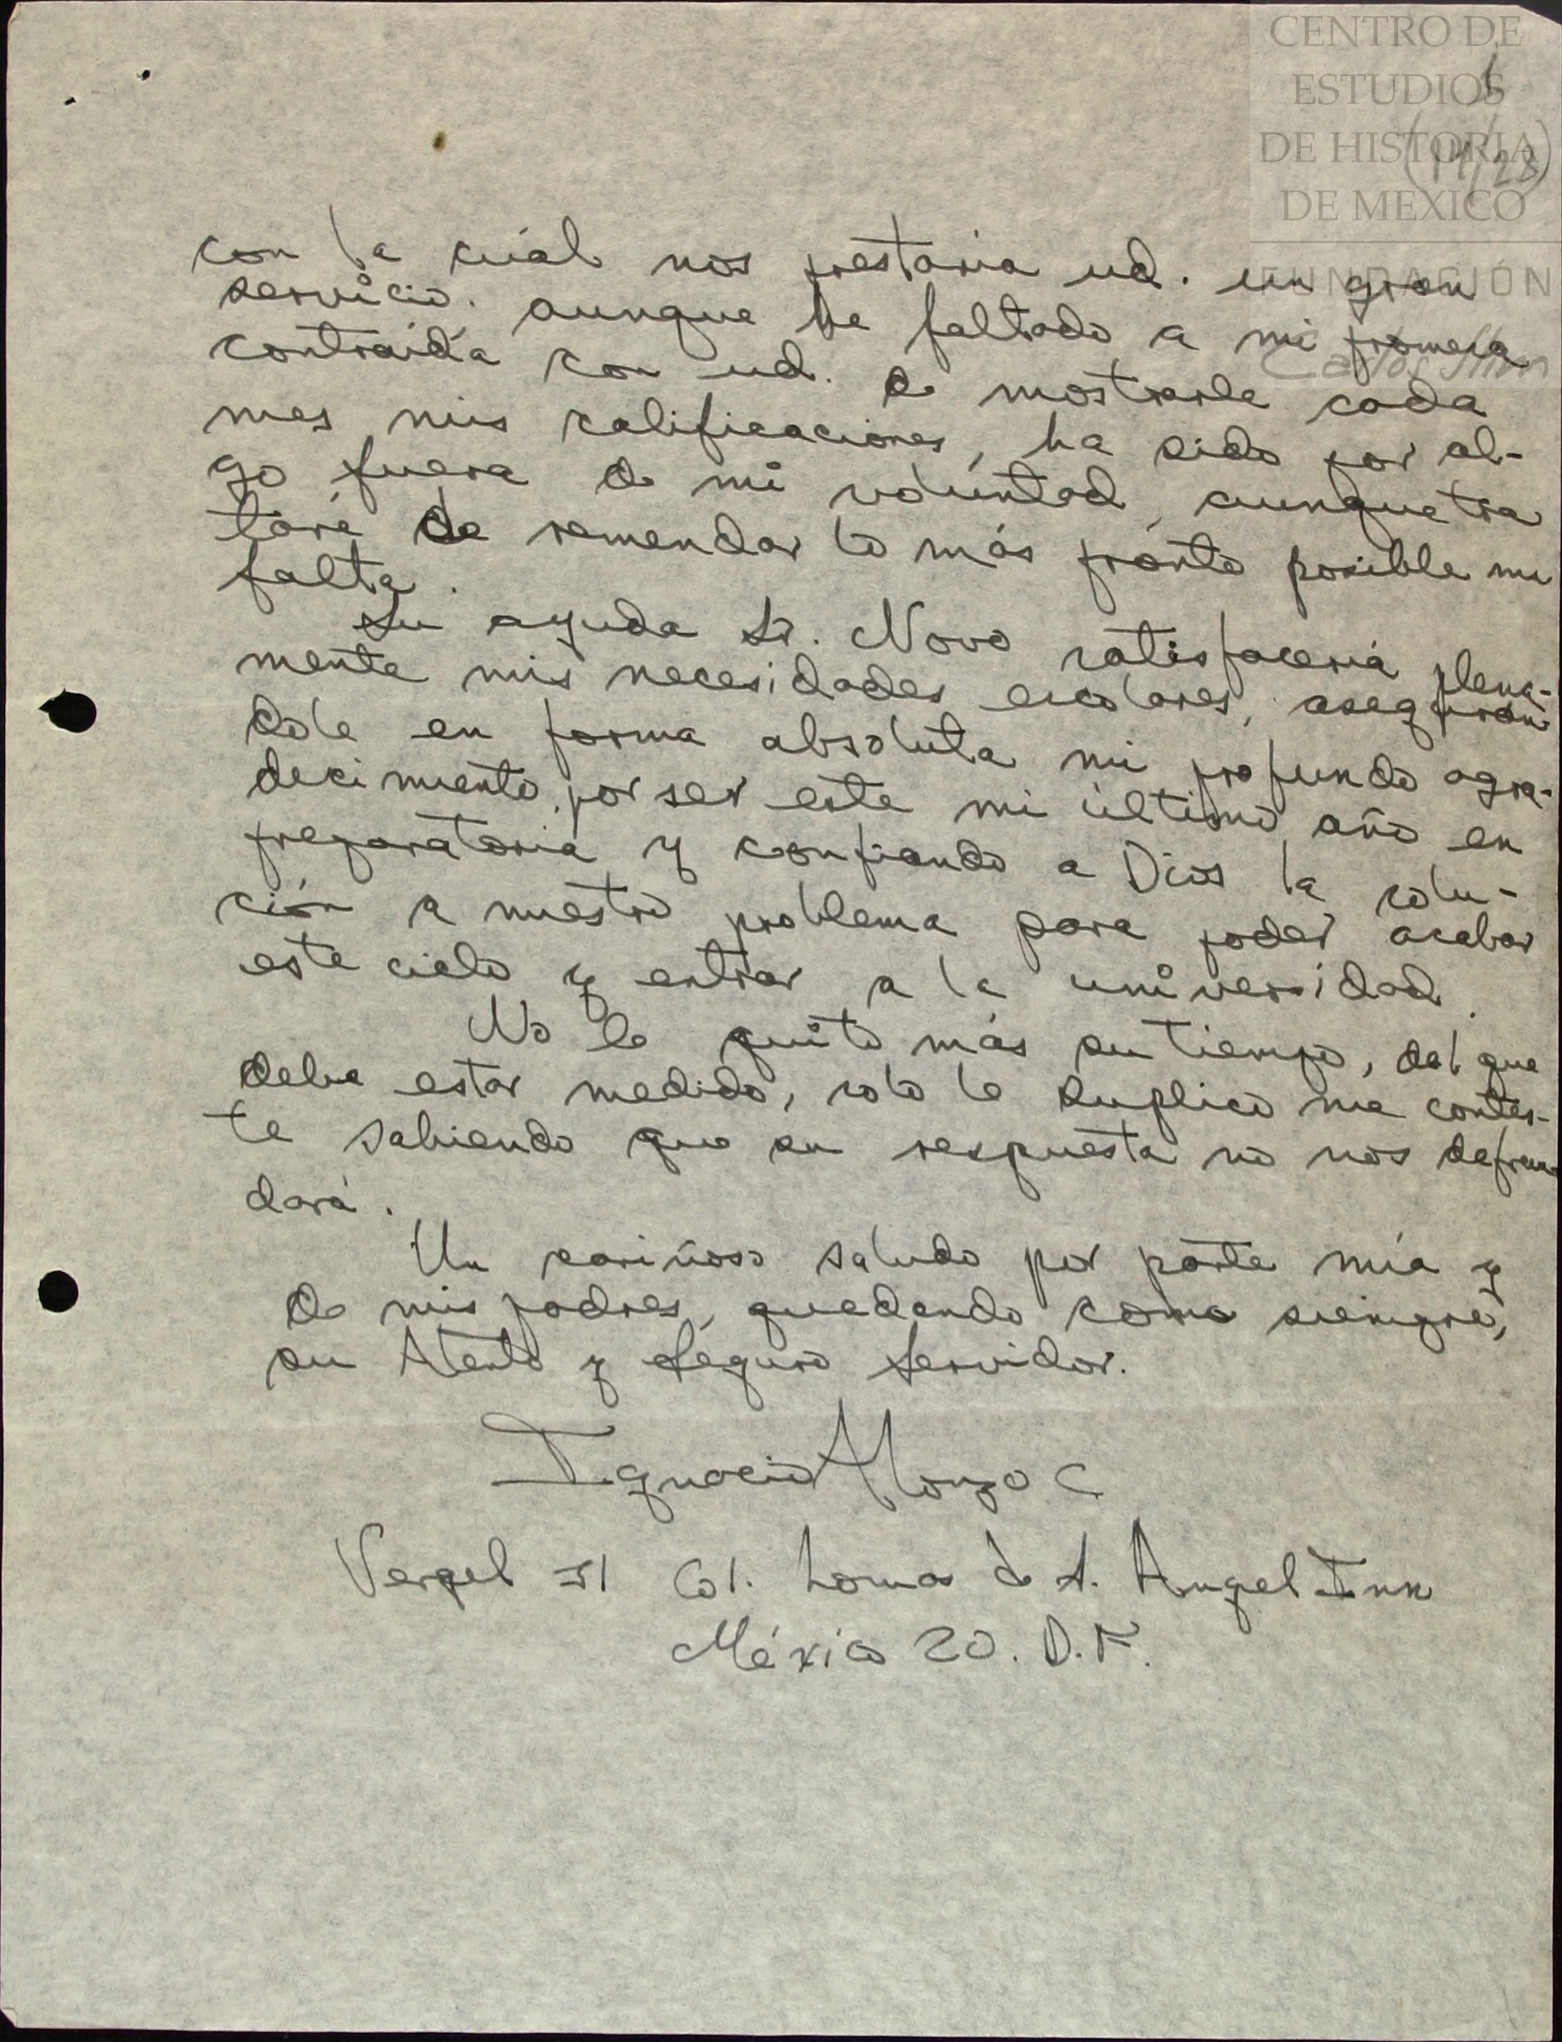 CENTRO DE
ESTUDIOS
DE HISTORIA
DE MÉXICO
FUNDACIÓN
Carlos Slim
con la cuál nos prestaria ud. un gran
servicio. aunque he faltado a mi promesa
contraída con ud. de mostrarle cada
mes mis calificaciones, ha sido por al-
go fuera de mi voluntad, aunque tra
taré de remendar lo más pronto posible mi
falta.
Su ayuda Sr. Novo satisfacería plena-
mente mis necesidades escolares, asegurán
dole en forma absoluta mi profundo agra-
decimiento, por ser este mi último año en
preparatoria y confiando a Dios la solu-
ción a nuestro problema para poder acabar
este ciclo y entrar a la universidad.
No le quito más su tiempo, del que
debe estar medido, solo le suplico me contes-
te sabiendo que su respuesta no nos defrau
dará.
Un cariñoso saludo por parte mía y
de mis padres, quedando como siempre,
su Atento y Seguro Servidor.
Ignacio Alonzo C
Vergel 31 Col. Lomas de S. Angel Inn
México 20. D.F.